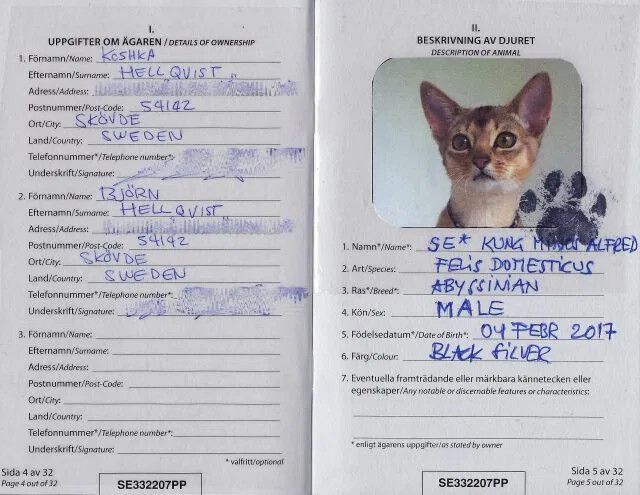 I.
UPPGIFTER OM ÄGAREN / DETAILS OF OWNERSHIP
1. Förnamn/Name: KOSHKA
Efternamn/Surname: HELLQVIST
Adress/Address:
Postnummer/Post-Code: 54142
Ort/City: SKÖVDE
Land/Country: SWEDEN
Telefonnummer*/Telephone number*:
Underskrift/Signature:
2. Förnamn/Name: BJÖRN
Efternamn/Surname: HELLQVIST
Adress/Address:
Postnummer/Post-Code: 54142
Ort/City: SKÖVDE
Land/Country: SWEDEN
Telefonnummer*/Telephone number*:
Underskrift/Signature:
3. Förnamn/Name:
Efternamn/Surname:
Adress/Address:
Postnummer/Post-Code:
Ort/City:
Land/Country:
Telefonnummer*/Telephone number*:
Underskrift/Signature:
* valfritt/optional
Sida 4 av 32
Page 4 out of 32
SE332207PP
II.
BESKRIVNING AV DJURET
DESCRIPTION OF ANIMAL
1. Namn*/Name*: SE* KUNG ALFRED
2. Art/Species: FELIS DOMESTICUS
3. Ras*/Breed*: ABYSSINIAN
4. Kön/Sex: MALE
5. Födelsedatum*/Date of Birth*: 04 FEBR 2017
6. Färg/Colour: BLACK SILVER
7. Eventuella framträdande eller märkbara kännetecken eller
egenskaper/Any notable or discernable features or characteristics:
* enligt ägarens uppgifter/as stated by owner
SE332207PP
Sida 5 av 32
Page 5 out of 32